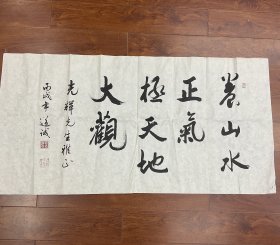 養山水
正氣
極天地
大觀
光輝先生雅正
丙戌年道誠